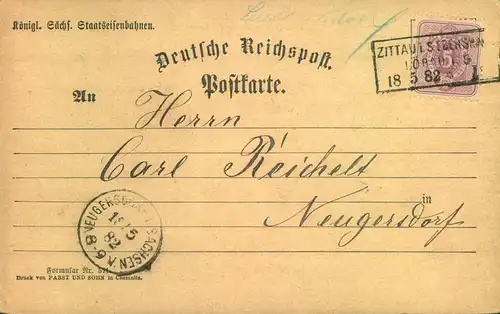 Königl. Sächs. Staatseisenbahnen.
Deutsche Reichspost.
Postkarte.
ZITTAU
LÖBAU
18 5 82 1
An
Herrn
Carl Reichelt
in
Neugersdorf
NEUGERSDORF SACHSEN
18/5
82
6-8 N.
Formular Nr.
Druck von PABST UND SOHN in Chemnitz.